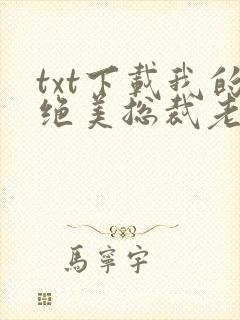 txt下载我的
绝美总裁老
馬寧宇